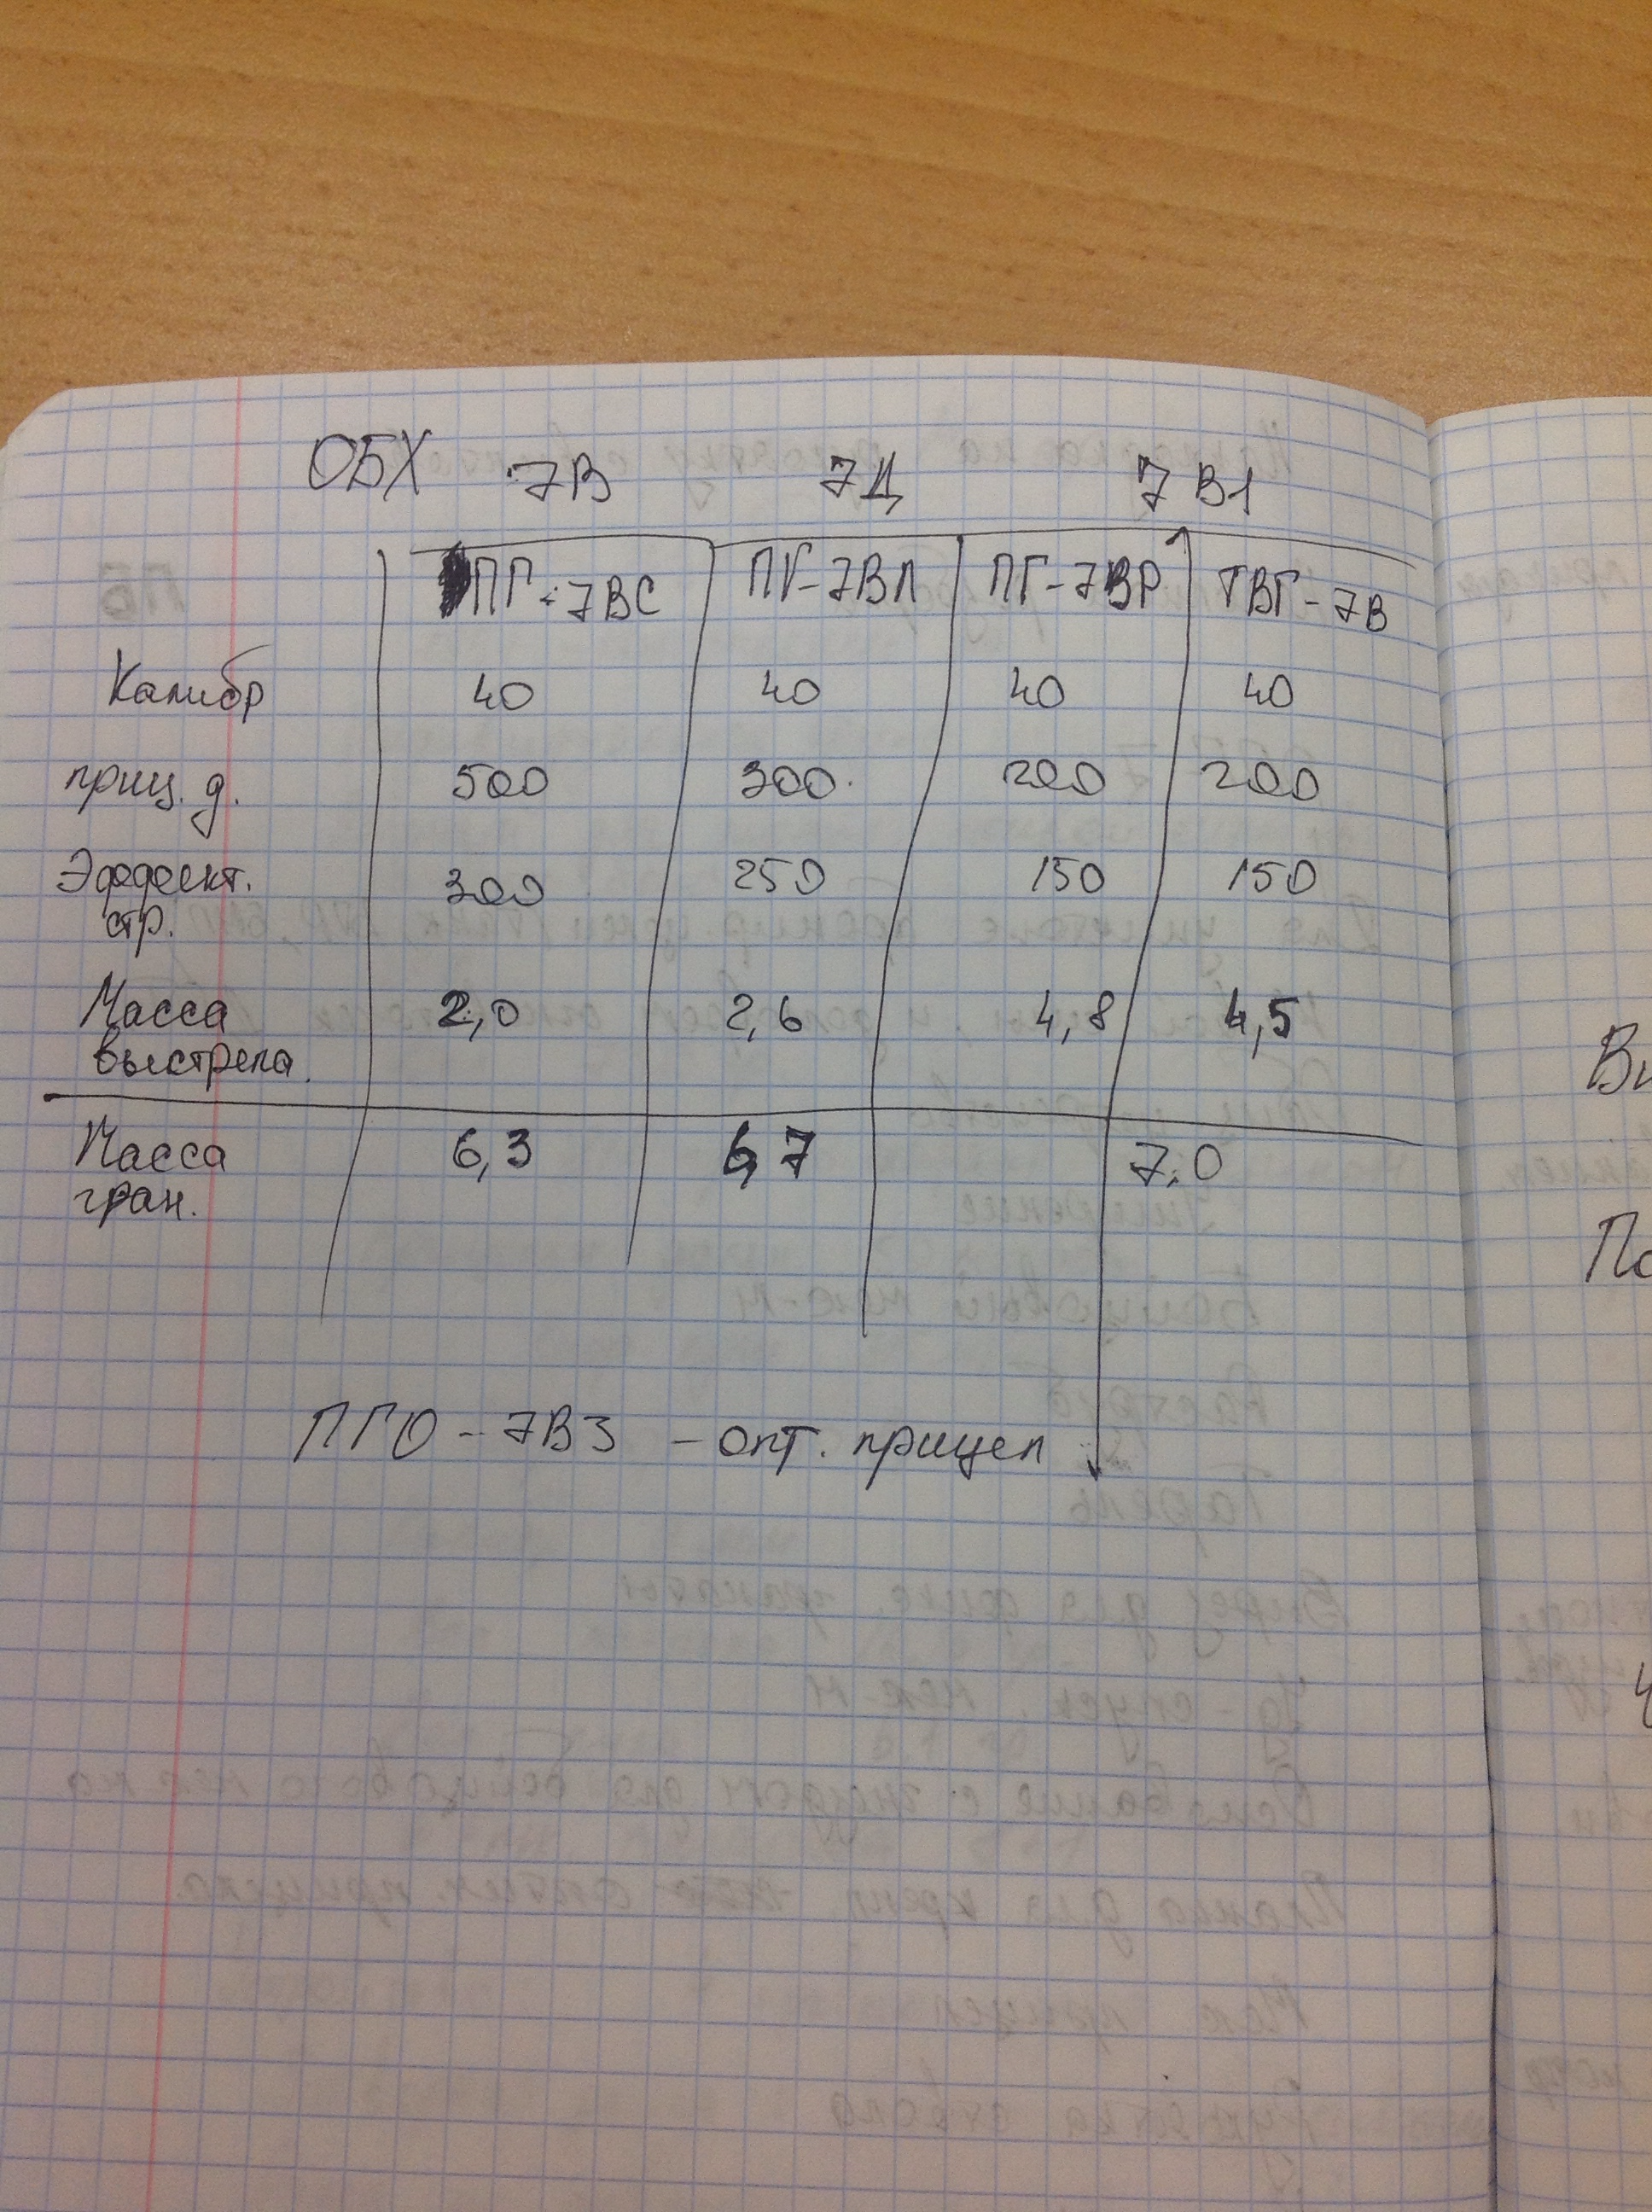 ОБХ 7В 7Д 7В1
ПГ-7ВС ПГ-7ВЛ ПГ-7ВР ТБГ-7В
Калибр 40 40 40 40
приц. д. 500 300 200 200
Эффект. 300 250 150 150
стр.
Масса 2,0 2,6 4,8 4,5
выстрела.
Масса 6,3 6,7 7,0
гран.
ПГО-7В3 - опт. прицел
Ви
По